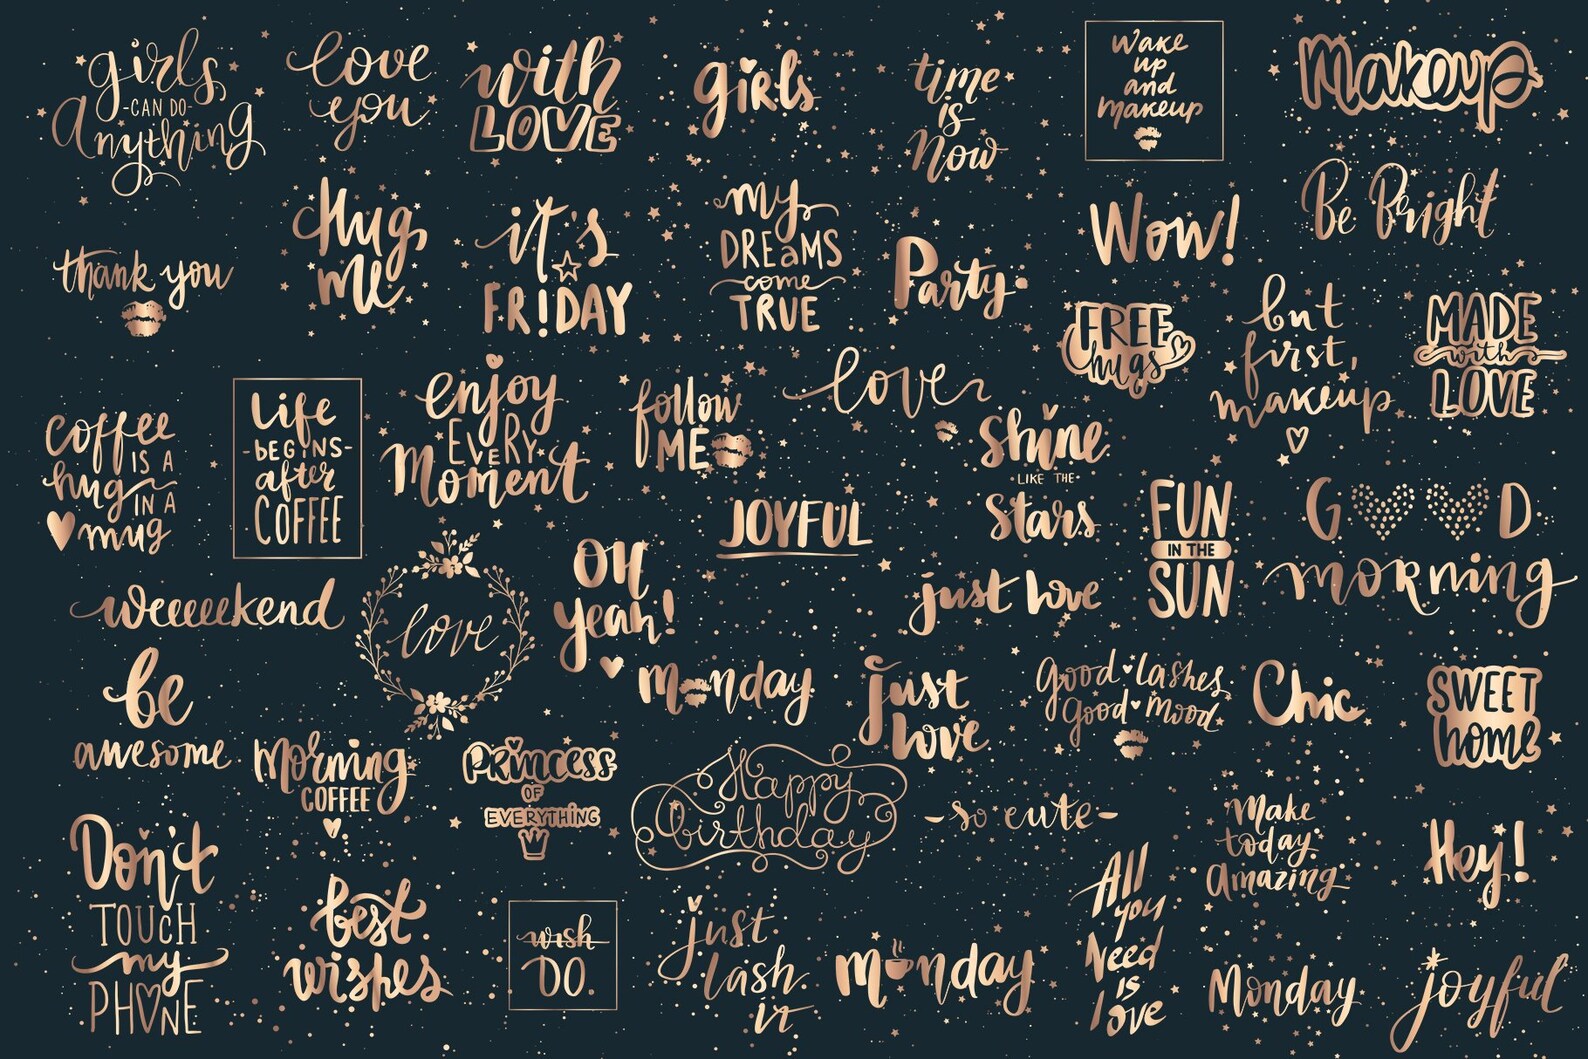 girls
-CAN DO-
Anything
love
you
with
LOVE
girls
time
is
Now
wake
up
and
makeup
Makeup
thank you
Hug
me
it's
FR!DAY
my
DREAMS
come
TRUE
Party
Wow!
Be Bright
FREE
hugs
but
first,
makeup
MADE
with
LOVE
coffee
IS A
hug IN A
mug
Life
-BEGINS-
after
COFFEE
enjoy
EVERY
Moment
follow
ME
love
Shine
LIKE THE
Stars
JOYFUL
FUN
IN THE
SUN
GOOD
morning
weeeeekend
love
OH
yeah!
just love
be
awesome
Monday
just
love
Good Lashes
Good Mood
Chic
SWEET
home
Morning
COFFEE
PRiNCESS
OF
EVERYTHING
Happy
birthday
-so cute-
Make
today
Amazing
Hey!
Don't
TOUCH
my
PHONE
best
wishes
wish
DO.
just
lash
it
Monday
All
you
Need
is
love
Monday
joyful